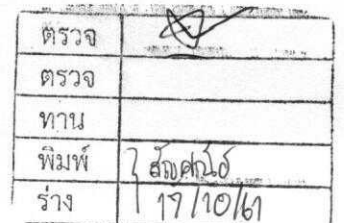 ตรวจ
ตรวจ
ทาน
พิมพ์
ร่าง 17/10/61